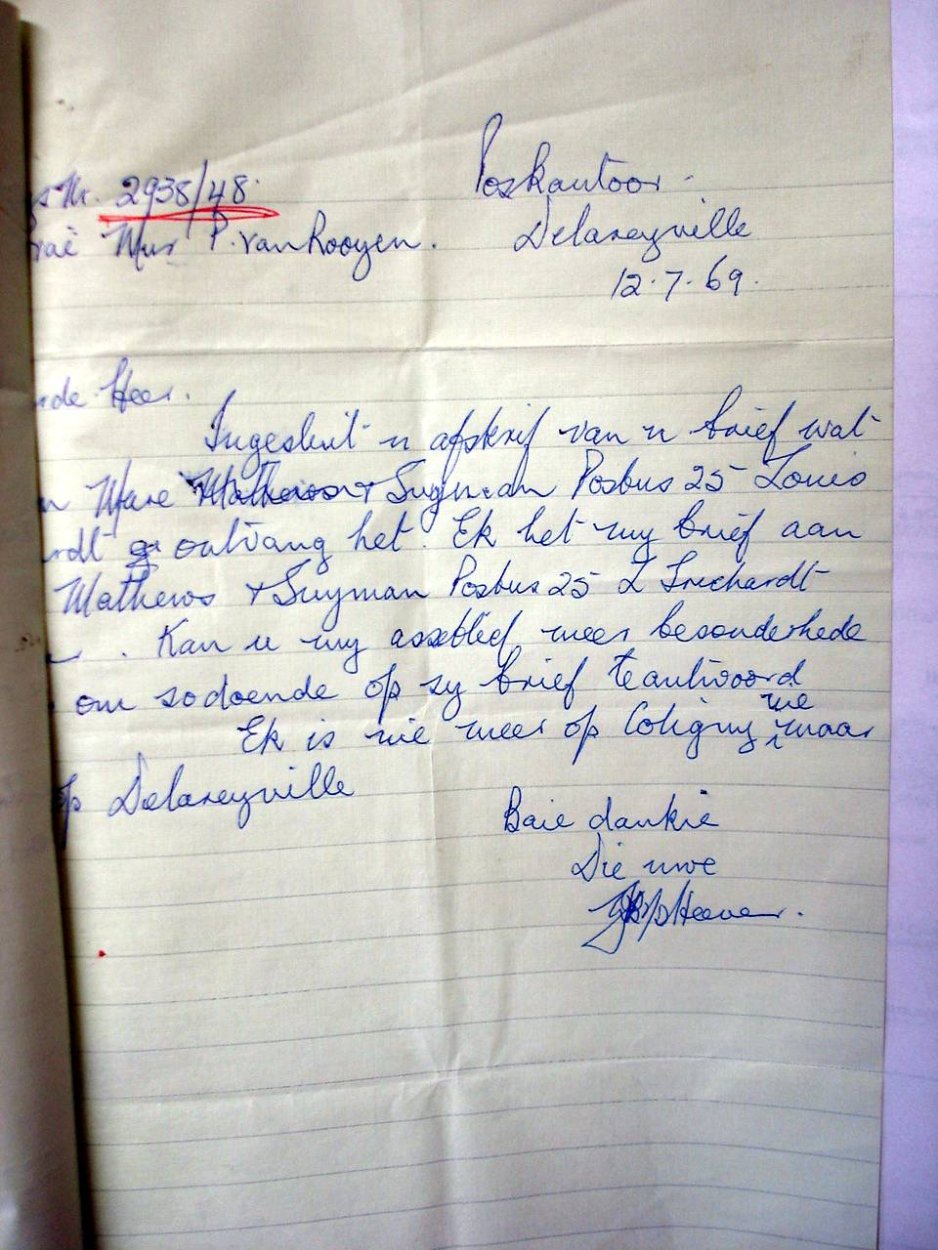 Poskantoor.
s Nr. 2938/48. Delareyville
Mnr P. van Rooyen. 12.7.69.
Heer.
Ingesluit n afskrif van n brief wat
n Mnre Mathews + Snyman Posbus 25 Louis
rdt ontvang het. Ek het my brief aan
Mathews + Snyman Posbus 25 L Trichardt
. Kan u my asseblief meer besonderhede
om sodoende op sy brief te antwoord
Ek is nie meer op Coligny nie maar
p Delareyville
Baie dankie
Die uwe